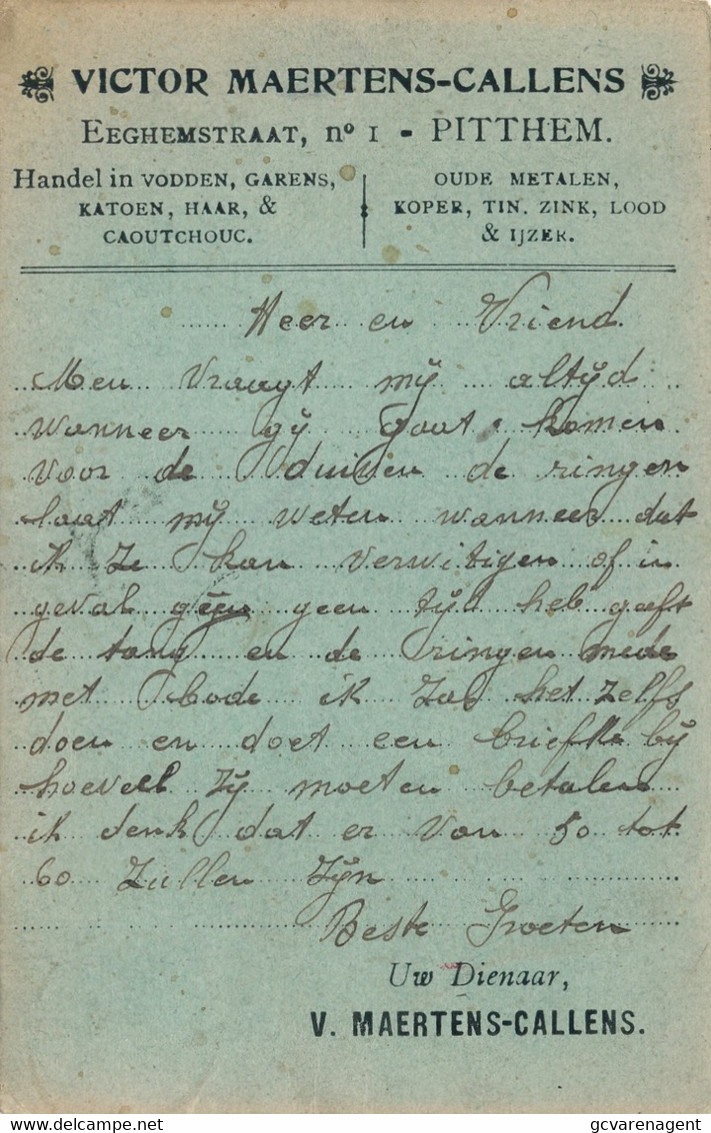 VICTOR MAERTENS-CALLENS
EEGHEMSTRAAT, nº 1 - PITTHEM.
Handel in VODDEN, GARENS,
KATOEN, HAAR, &
CAOUTCHOUC.
OUDE METALEN,
KOPER, TIN, ZINK, LOOD
& IJZER.
Heer en Vriend
Men vraagt mij altijd
wanneer gij gaat komen
voor de duiven de ringen
laat mij weten wanneer dat
ik ze kan verwitigen of in
geval geen geen tijd heb geeft
de tang en de ringen mede
met bode ik zal het zelfs
doen en doet een briefke bij
hoeveel zij moeten betalen
ik denk dat er van 50 tot
60 zullen zijn
Beste Groeten
Uw Dienaar,
V. MAERTENS-CALLENS.
gcvarenagent
delcampe.net